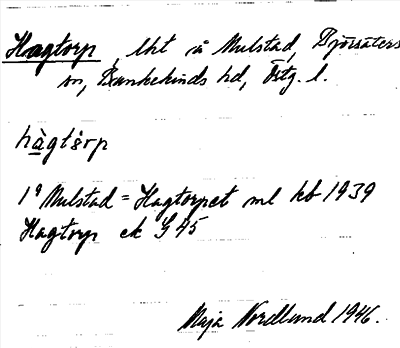 Hagtorp, lht å Mulstad, Björsäters
sn, Bankekinds hd, Östg. l.
hàgtårp
1º Mulstad = Hagtorpet ml kb 1939
Hagtorp ek G 45
Maja Nordlund 1946.